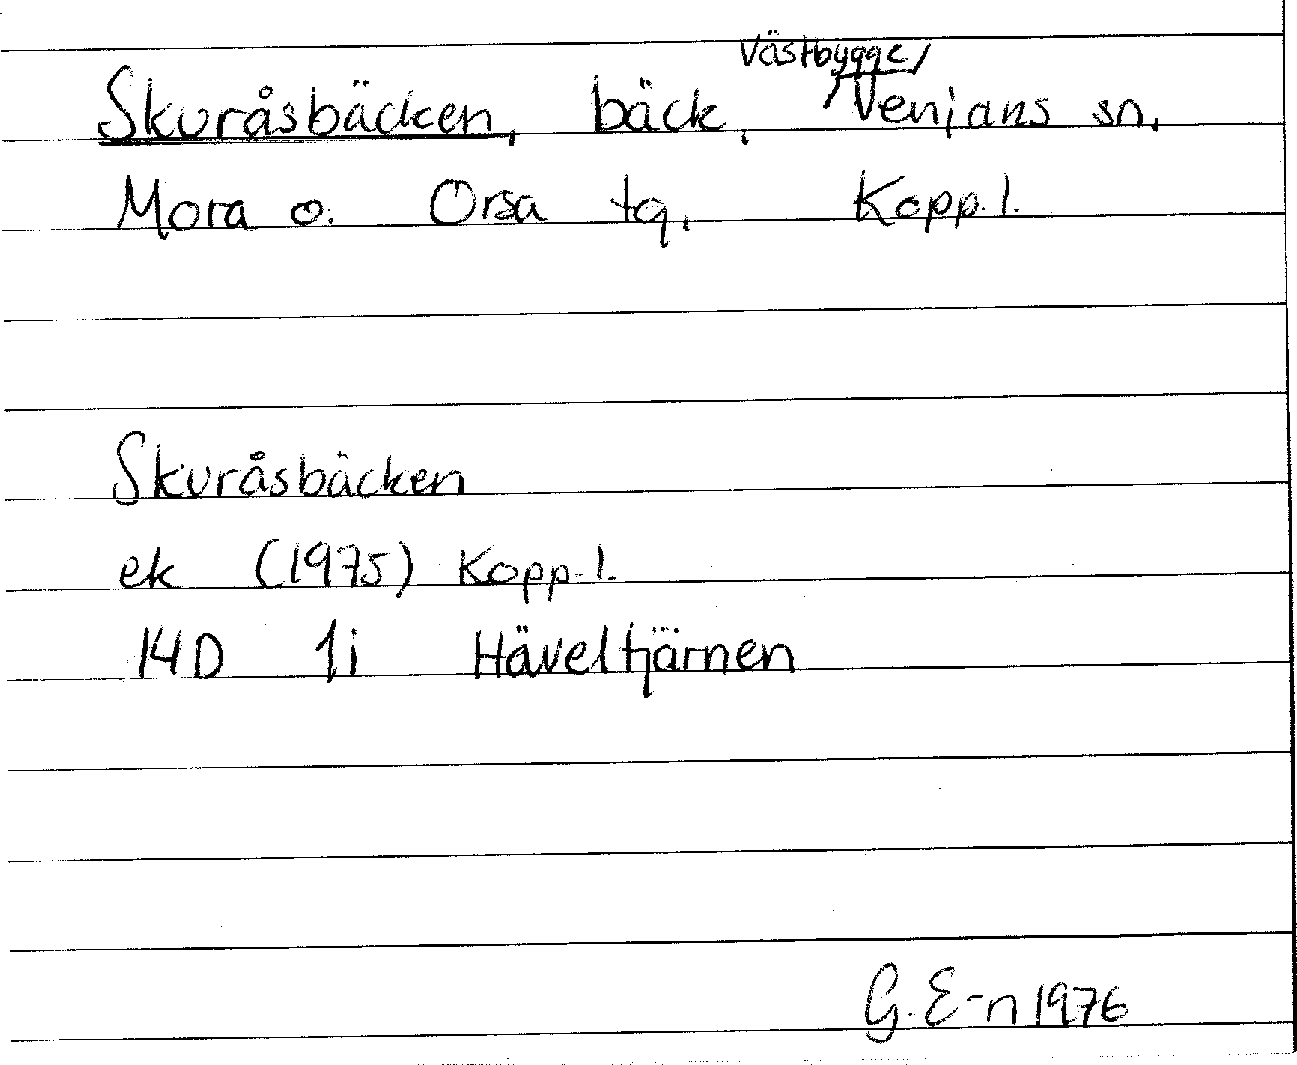 Skuråsbäcken, bäck, Västbygge, Venjans sn,
Mora o. Orsa tg, Kopp. l.
Skuråsbäcken
ek (1975) Kopp. l.
14D 1i Häveltjärnen
G. E-n 1976